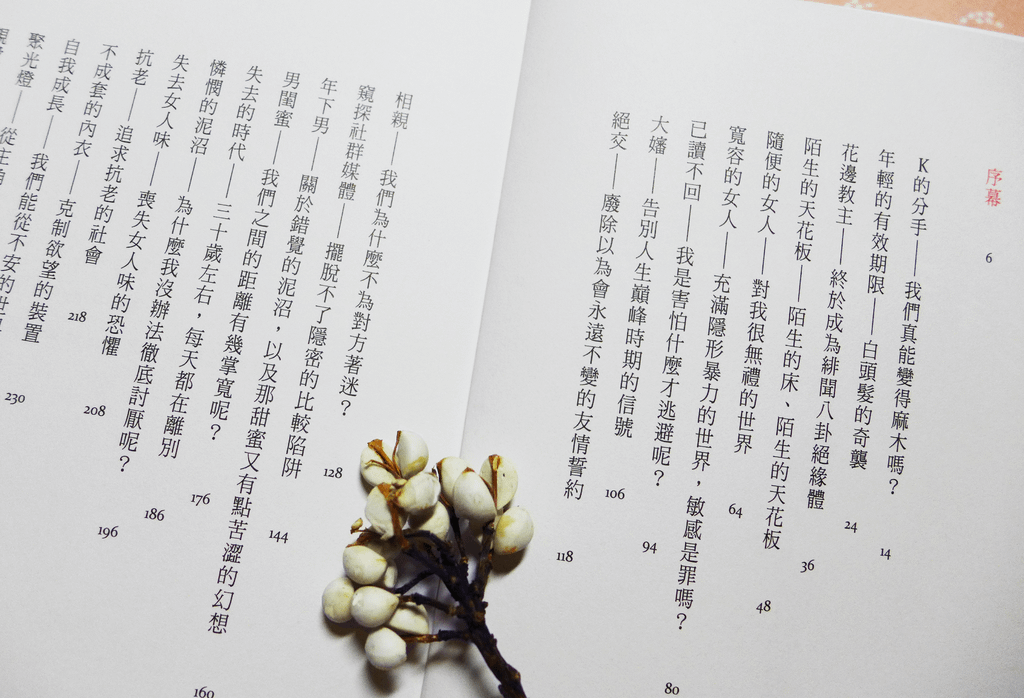 序幕 6
K的分手——我們真能變得麻木嗎？ 14
年輕的有效期限——白頭髮的奇襲 24
花邊教主——終於成為緋聞八卦絕緣體 36
陌生的天花板——陌生的床、陌生的天花板 48
隨便的女人——對我很無禮的世界 64
寬容的女人——充滿隱形暴力的世界，敏感是罪嗎？ 80
已讀不回——我是害怕什麼才逃避呢？ 94
大嬸——告別人生巔峰時期的信號 106
絕交——廢除以為會永遠不變的友情誓約 118
相親——我們為什麼不為對方著迷？ 128
窺探社群媒體——擺脫不了隱密的比較陷阱 144
年下男——關於錯覺的泥沼，以及那甜蜜又有點苦澀的幻想 160
男閨蜜——我們之間的距離有幾掌寬呢？ 176
失去的時代——三十歲左右，每天都在離別 186
憐憫的泥沼——為什麼我沒辦法徹底討厭呢？ 196
失去女人味——喪失女人味的恐懼 208
抗老——追求抗老的社會 218
不成套的內衣——克制欲望的裝置 230
自我成長——我們能從不安的世
聚光燈——從主角